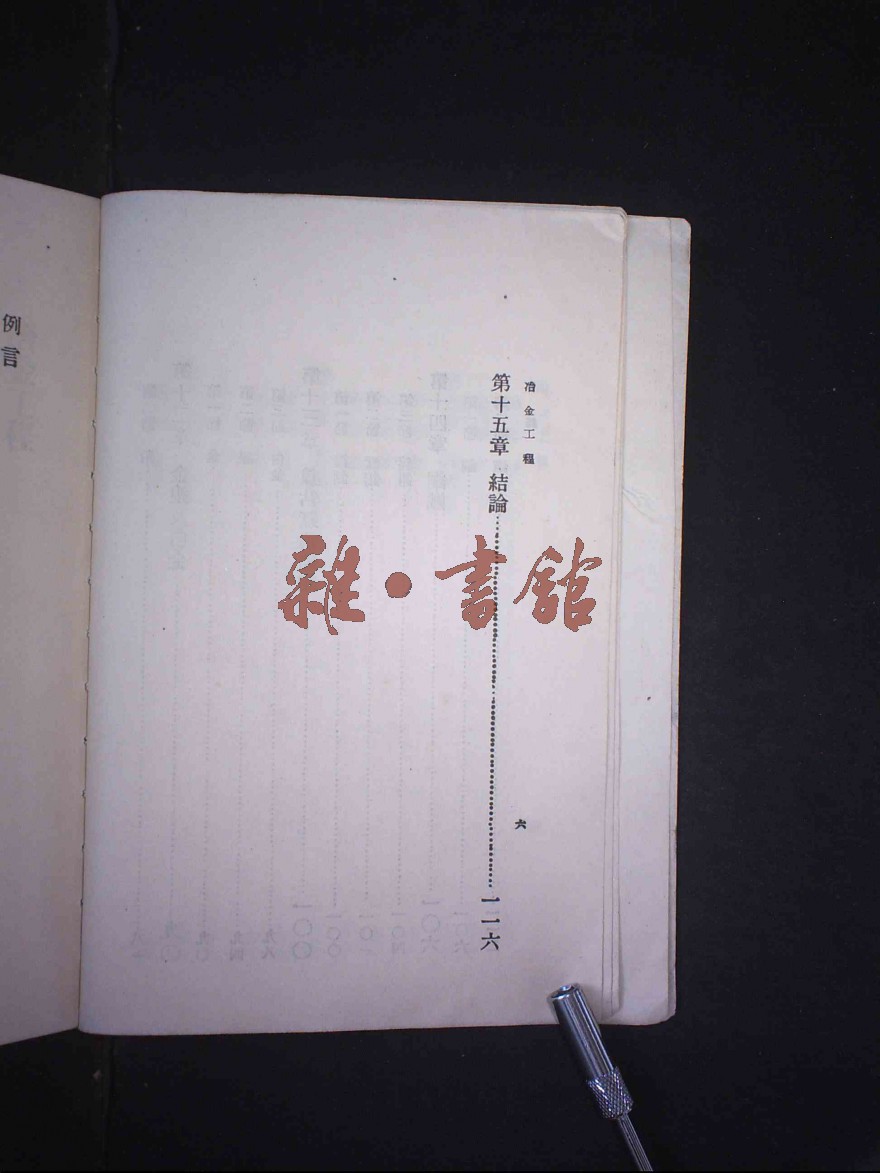 冶金工程
六
第十五章 結論……一一六
例言
雜·書館